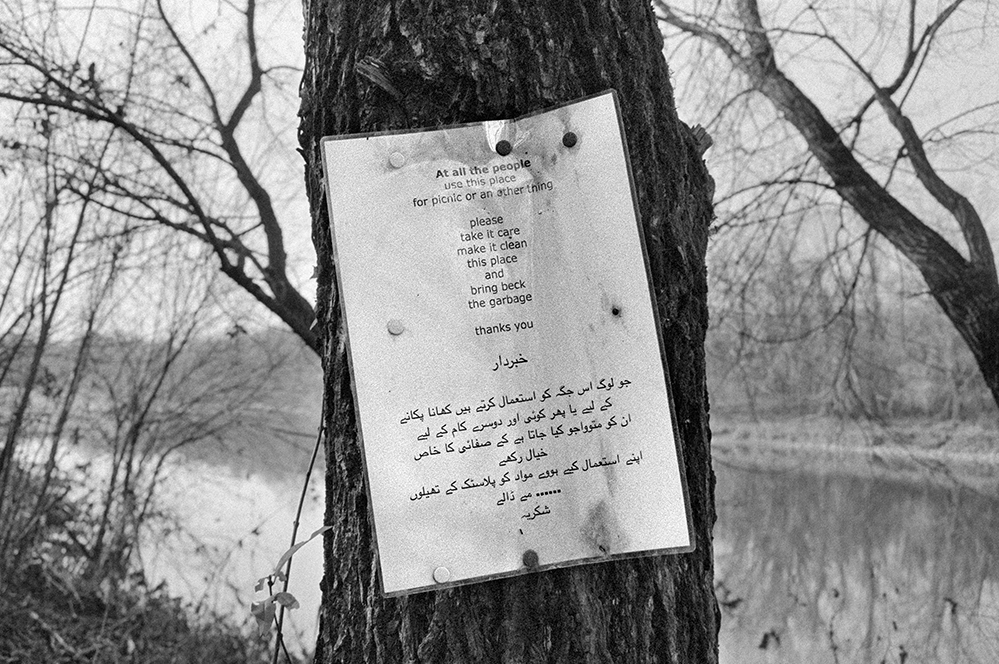 At all the people
use this place
for picnic or an other thing
please
take it care
make it clean
this place
and
bring beck
the garbage
thanks you
خبردار
جو لوگ اس جگہ کو استعمال کرتے ہیں کھانا پکانے
کے لیے یا پھر کوئی اور دوسرے کام کے لیے
ان کو متوواجو کیا جاتا ہے کے صفائی کا خاص
خیال رکھے
اپنے استعمال کیے ہووے مواد کو پلاسٹک کے تھیلوں
مے ڈالے ......
شکریہ